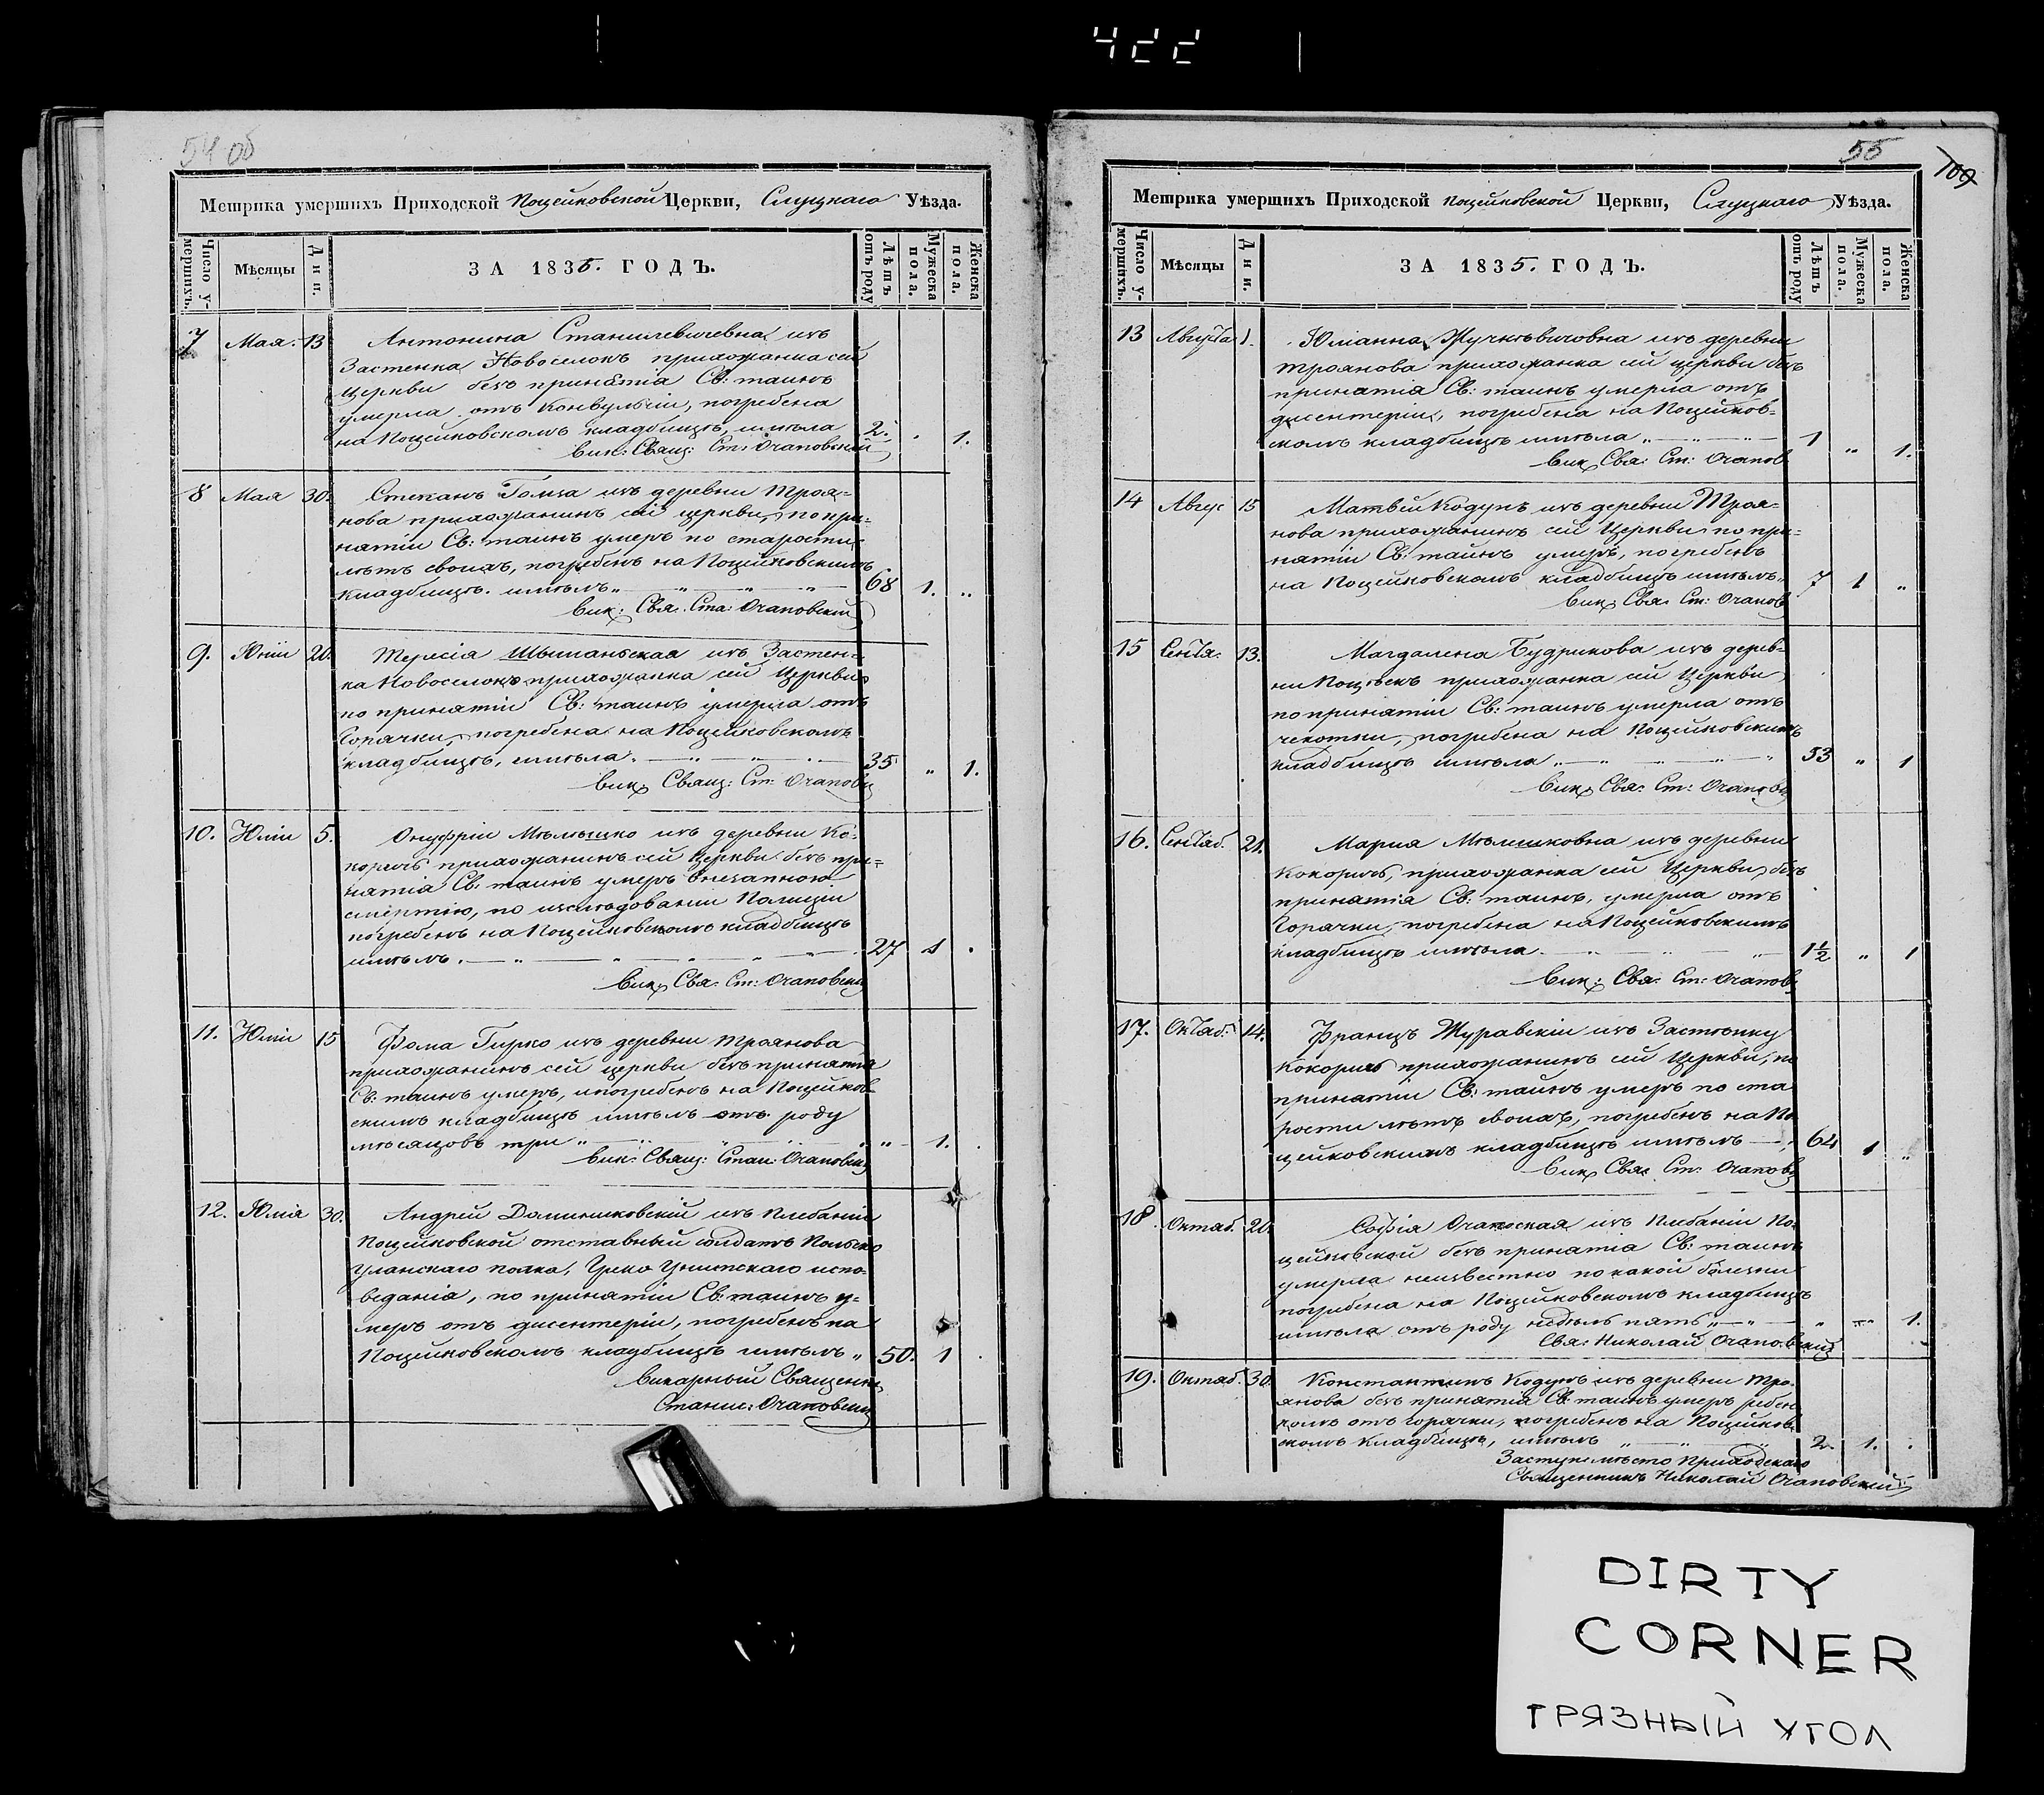 422
54 об
Метрика умершихъ Приходской Поцейковской Церкви, Слуцкаго Уѣзда.
Число умершихъ.
Мѣсяцы
Дни.
ЗА 1835. ГОДЪ.
Лѣтъ отъ роду
Мужеска пола.
Женска пола.
7 Мая. 13 Антонина Станилевичевна изъ
Застенка Новоселокъ прихожанка сей
Церкви безъ принятія Св: таинъ
умерла отъ Конвульсіи, погребена
на Поцейковскомъ кладбищѣ, имѣла 2. . 1.
Вик: Свящ: Ст: Очаповскій
8 Мая 30. Степанъ Гомза изъ деревни Троя=
нова прихожанинъ сей церкви, по при=
нятіи Св: таинъ умеръ по старости
лѣтъ своихъ, погребенъ на Поцейковскимъ
кладбищѣ. имѣлъ „ „ „ „ 68 1. „
Вик: Свя: Ста: Очаповскій
9. Юніи 20. Тересія Шиманьская изъ Застен=
ка Новоселокъ прихожанка сей Церкви
по принятіи Св: таинъ умерла отъ
Горячки, погребена на Поцейковскомъ
кладбищѣ, имѣла. „ „ „ 35 „ 1.
Вик: Свящ: Ст: Очаповск
10. Юліи 5. Онуфріи Мѣлешко изъ деревни Ко=
коричъ прихожанинъ сей Церкви безъ при=
нятія Св: таинъ умеръ внезапною
смертію, по изслѣдованіи Полиціи
погребенъ на Поцейковскомъ кладбищѣ
имѣлъ. „ „ „ „ „ 27 1 .
Вик: Свя: Ст: Очаповски
11. Юліи 15 Фома Гирко изъ деревни Троянова
прихожанинъ сей церкви безъ принятія
Св: таинъ умеръ, и погребенъ на Поцейков
скимъ кладбищѣ имѣлъ отъ роду
мѣсяцовъ три „ „ „ „ „ „ 1. .
Вик: Свящ: Стан: Очаповск
12. Юлія 30. Андрей Доминиковскій изъ Плебаніи
Поцейковской отставный солдатъ Польско
Уланскаго полка, Греко Унитскаго испо=
веданія, по принятіи Св: таинъ у=
меръ отъ дисентеріи, погребенъ на
Поцейковскомъ кладбищѣ имѣлъ „ 50. 1 .
Викарный Священни
Станис: Очаповски
55
109
Метрика умершихъ Приходской Поцейковской Церкви, Слуцкаго Уѣзда.
Число умершихъ.
Мѣсяцы
Дни.
ЗА 1835. ГОДЪ.
Лѣтъ отъ роду
Мужеска пола.
Женска пола.
13 Августа 1. Юліанна Жучкѣвичовна изъ деревни
Троянова прихожанка сей церкви безъ
принятія Св: таинъ умерла отъ
дисентеріи, погребена на Поцейков=
скомъ кладбищѣ имѣла „ „ „ 1 „ 1.
Вик: Свя: Ст: Очапов
14 Авгус 15 Матвѣй Кодунъ изъ деревни Троя=
нова прихожанинъ сей Церкви по при=
нятіи Св: таинъ умеръ, погребенъ
на Поцейковскомъ кладбищѣ имѣлъ „ 7 1 „
Вик: Свя: Ст: Очапов
15 Сентя. 13. Магдалена Будрикова изъ дерев=
ни Поцѣекъ прихожанка сей Церкви
по принятіи Св: таинъ умерла отъ
чехотки, погребена на Поцейковскимъ
кладбищѣ имѣла „ „ „ „ 53 „ 1
Вик: Свя: Ст: Очаповс
16. Сентяб. 21. Мария Мѣлешковна изъ деревни
Кокоричъ, прихожанка сей Церкви, безъ
принятія Св: таинъ, умерла отъ
Горячки, погребена на Поцейковскимъ
кладбищѣ имѣла. „ „ „ 1½ „ 1
Вик: Свя: Ст: Очапов
17. Октяб. 14. Францъ Журавскіи изъ Застѣнку
Кокоричъ прихожанинъ сей Церкви, по
принятіи Св: таинъ умеръ по ста
рости лѣтъ своихъ, погребенъ на По
цейковскимъ кладбищѣ имѣлъ „ 64 1 „
Вик: Свя: Ст: Очаповс
18. Октяб. 20. Софія Очапоская изъ Плебаніи По=
цейковской безъ принятія Св: таинъ
умерла неизвестно по какой болезни
погребена на Поцейковскомъ кладбищѣ
имѣла отъ роду недѣль пять „ „ „ „ 1.
Свя: Николай Очаповскій
19. Октяб. 30. Константинъ Кодунъ изъ деревни Тро=
янова безъ принятія Св: таинъ умеръ ребен
комъ отъ горячки, погребенъ на Поцейков
скомъ кладбищѣ, имѣлъ „ „ „ 2. 1. .
Заступ: мѣсто Приходскаго
Священникъ Николай Очаповскій
DIRTY
CORNER
ГРЯЗНЫЙ УГОЛ